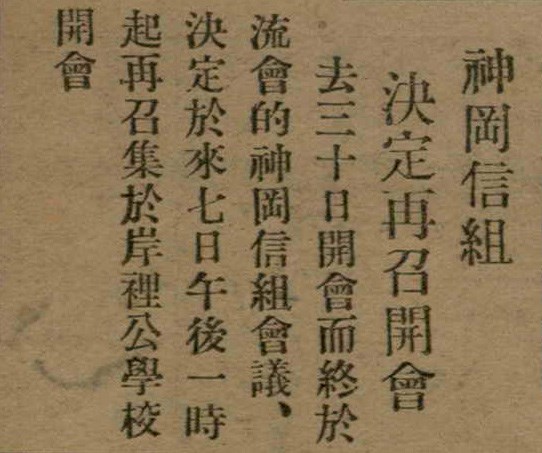 神岡信組
決定再召開會
去三十日開會而終於
流會的神岡信組會議、
決定於來七日午後一時
起再召集於岸裡公學校
開會